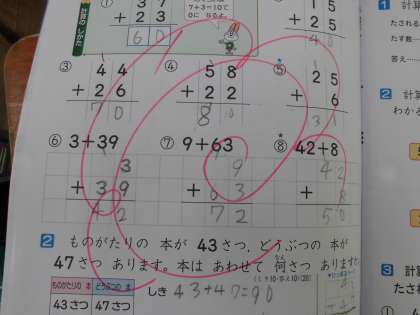 計算のしかた
① 37
7+3=10で
+ 23
60
+ 25
40
③ 44
+ 26
70
④ 58
+ 22
80
⑤ 25
+ 6
31
⑥ 3+39
3
+ 39
42
⑦ 9+63
9
+ 63
72
⑧ 42+8
42
+ 8
50
2 ものがたりの 本が 43さつ、どうぶつの 本が
47さつ あります。本は あわせて 何さつ ありますか。
ものがたりの 本 どうぶつの 本
43さつ 47さつ
しき 43+47=90
1 計算
たされ
たす数…
答え…
2 計算
わかる
3 計算
たされ